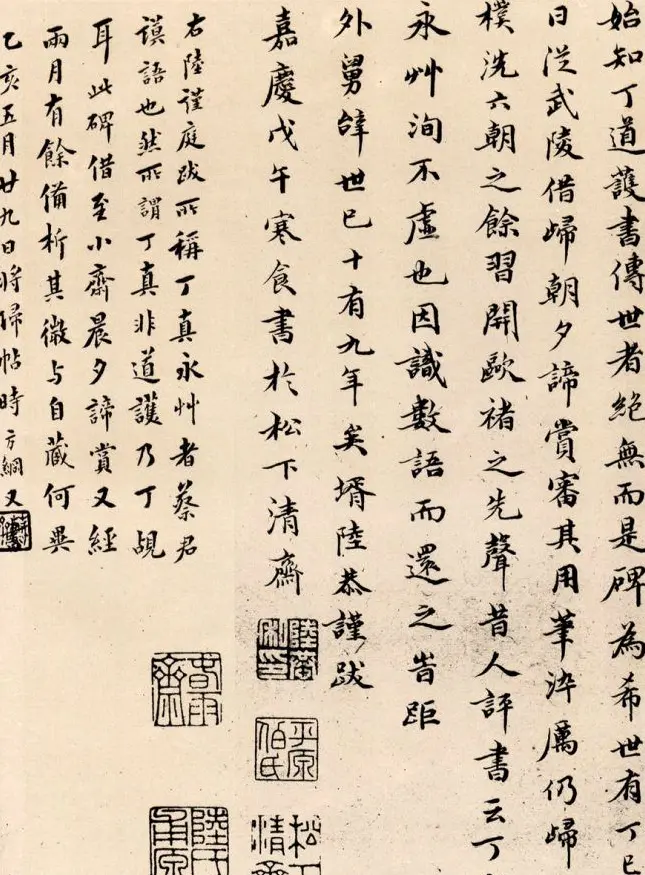 始知丁道護書傳世者絕無而是碑為希世有丁巳
日從武陵借歸朝夕諦賞審其用筆淬厲仍歸
樸洗六朝之餘習開歐褚之先聲昔人評書云丁
永艸洵不虛也因識數語而還之旹距
外舅辝世已十有九年矣壻陸恭謹跋
嘉慶戊午寒食書於松下清齋
陸恭私印
平原伯氏
松下清齋
右陸謹庭跋所稱丁真永艸者蔡君
謨語也然所謂丁真非道護乃丁覘
春雨齋
耳此碑借至小齋晨夕諦賞又經
兩月有餘備析其微与自藏何異
乙亥五月廿九日將歸帖時方綱又